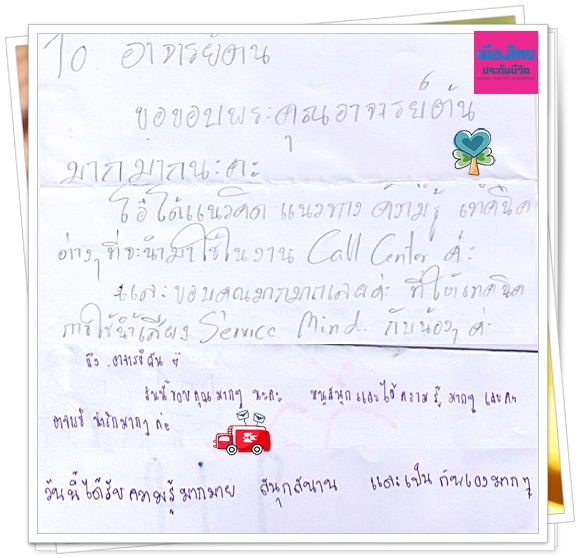 เมืองไทย
ประกันชีวิต
To อาจารย์ต้น
ขอขอบพระคุณอาจารย์ต้น
มากมากนะคะ
ได้แนวคิด แนวทาง ความรู้ เทคนิค
ต่างๆที่จะนำมาใช้ในงาน Call Center ค่ะ
และขอบคุณมากมากเลยค่ะ ที่ให้เทคนิค
การใช้น้ำเสียง Service Mind. กับน้องๆ ค่ะ
ถึง อาจารย์ต้น
วันนี้ขอบคุณมากๆ นะคะ หนูสนุกและได้ความรู้มากๆ เลยคะ
อาจารย์ น่ารักมากๆ ค่ะ
วันนี้ได้รับความรู้มากมาย สนุกสนาน และเป็นกันเองมากๆ